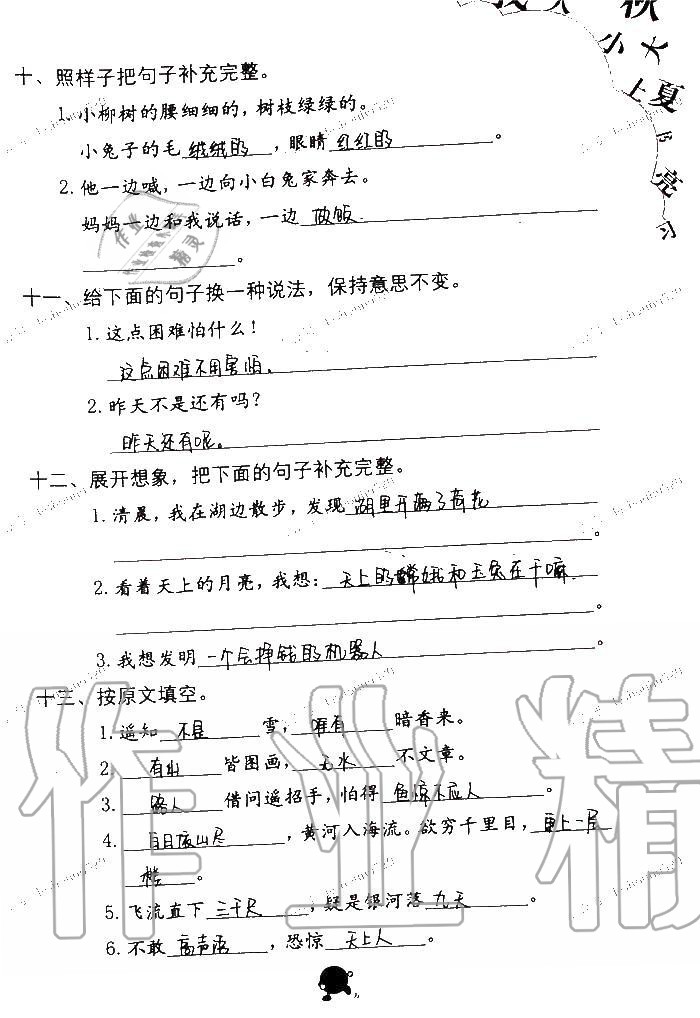 秋
小大
上夏
亮
习
十、照样子把句子补充完整。
1.小柳树的腰细细的，树枝绿绿的。
小兔子的毛绒绒的，眼睛红红的。
2.他一边喊，一边向小白兔家奔去。
妈妈一边和我说话，一边做饭
。
十一、给下面的句子换一种说法，保持意思不变。
1.这点困难怕什么！
这点困难不用害怕。
2.昨天不是还有吗？
昨天还有呢。
十二、展开想象，把下面的句子补充完整。
1.清晨，我在湖边散步，发现湖里开满了荷花
。
2.看着天上的月亮，我想：天上的嫦娥和玉兔在干嘛
。
3.我想发明一个会挣钱的机器人。
十三、按原文填空。
1.遥知不是雪，唯有暗香来。
2.有山皆图画，无水不文章。
3.路人借问遥招手，怕得鱼惊不应人。
4.白日依山尽，黄河入海流。欲穷千里目，更上一层
楼。
5.飞流直下三千尺，疑是银河落九天。
6.不敢高声语，恐惊天上人。
作业精
作业
精灵